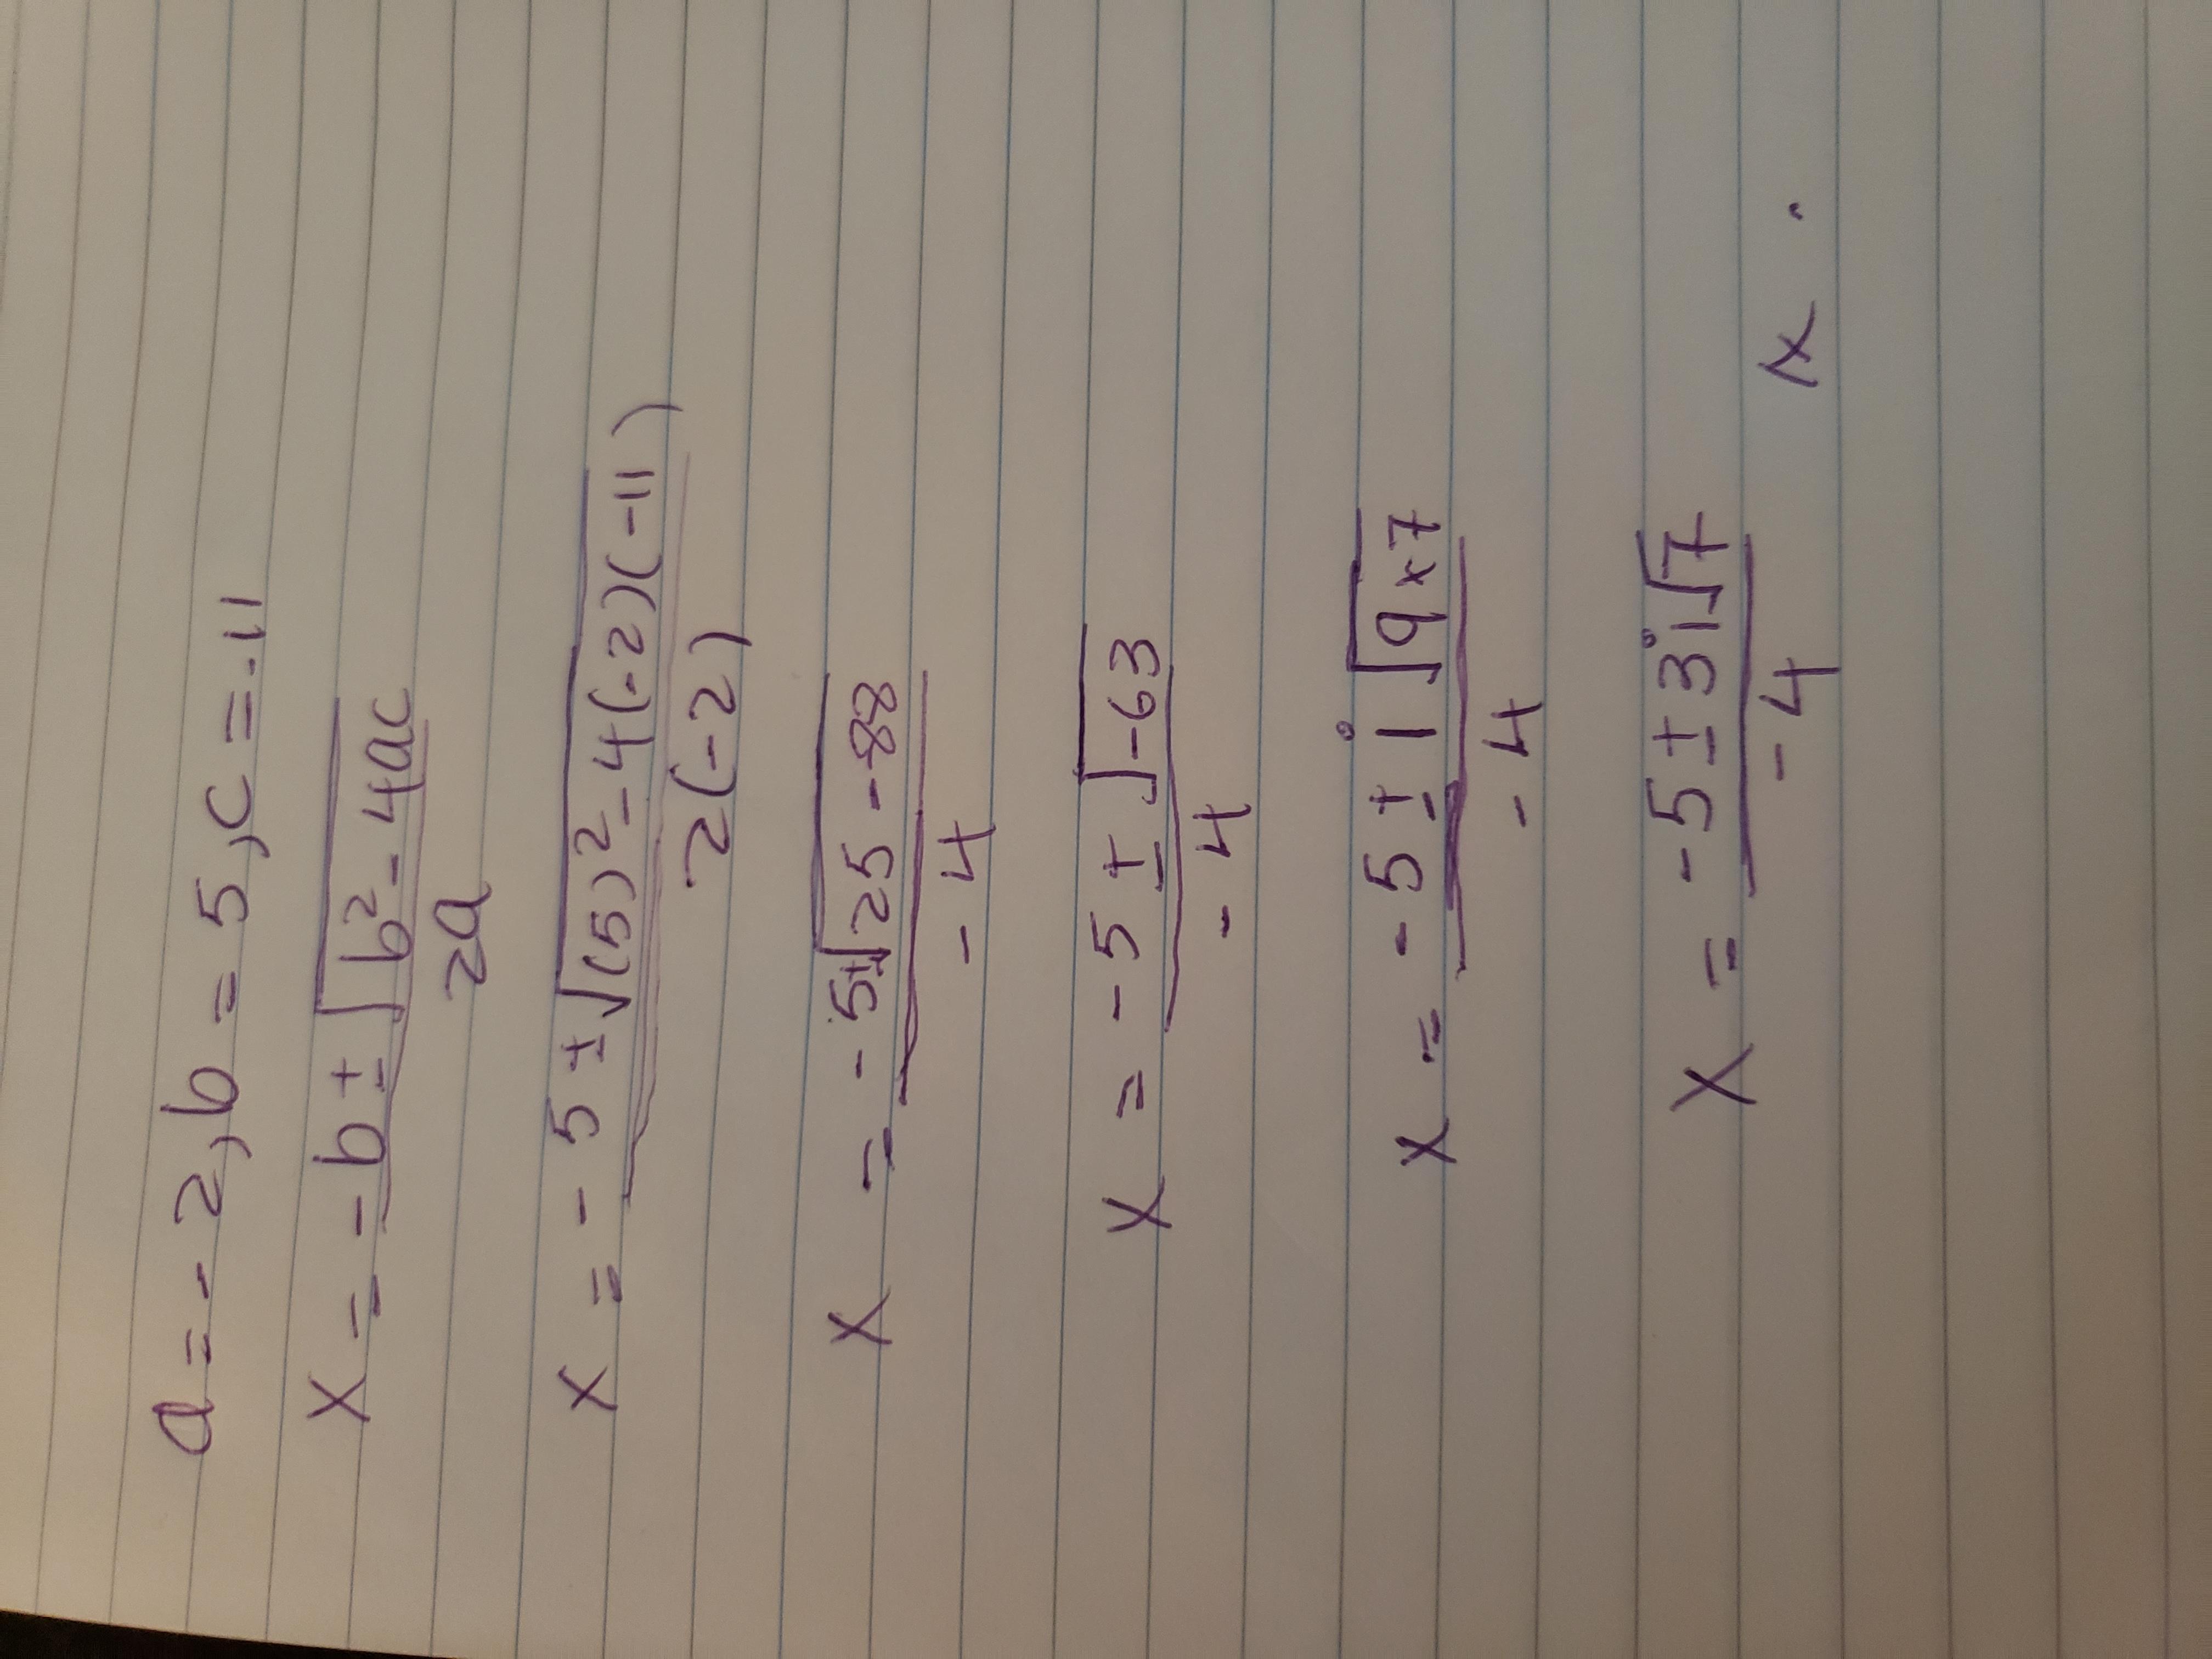 a = -2, b = 5, c = -11
x = -b ± √b² - 4ac
2a
x = -5 ± √(5)² - 4(-2)(-11)
2(-2)
x = -5 ± √25 - 88
-4
x = -5 ± √-63
-4
x = -5 ± i √9 x 7
-4
x = -5 ± 3i√7
-4
x .